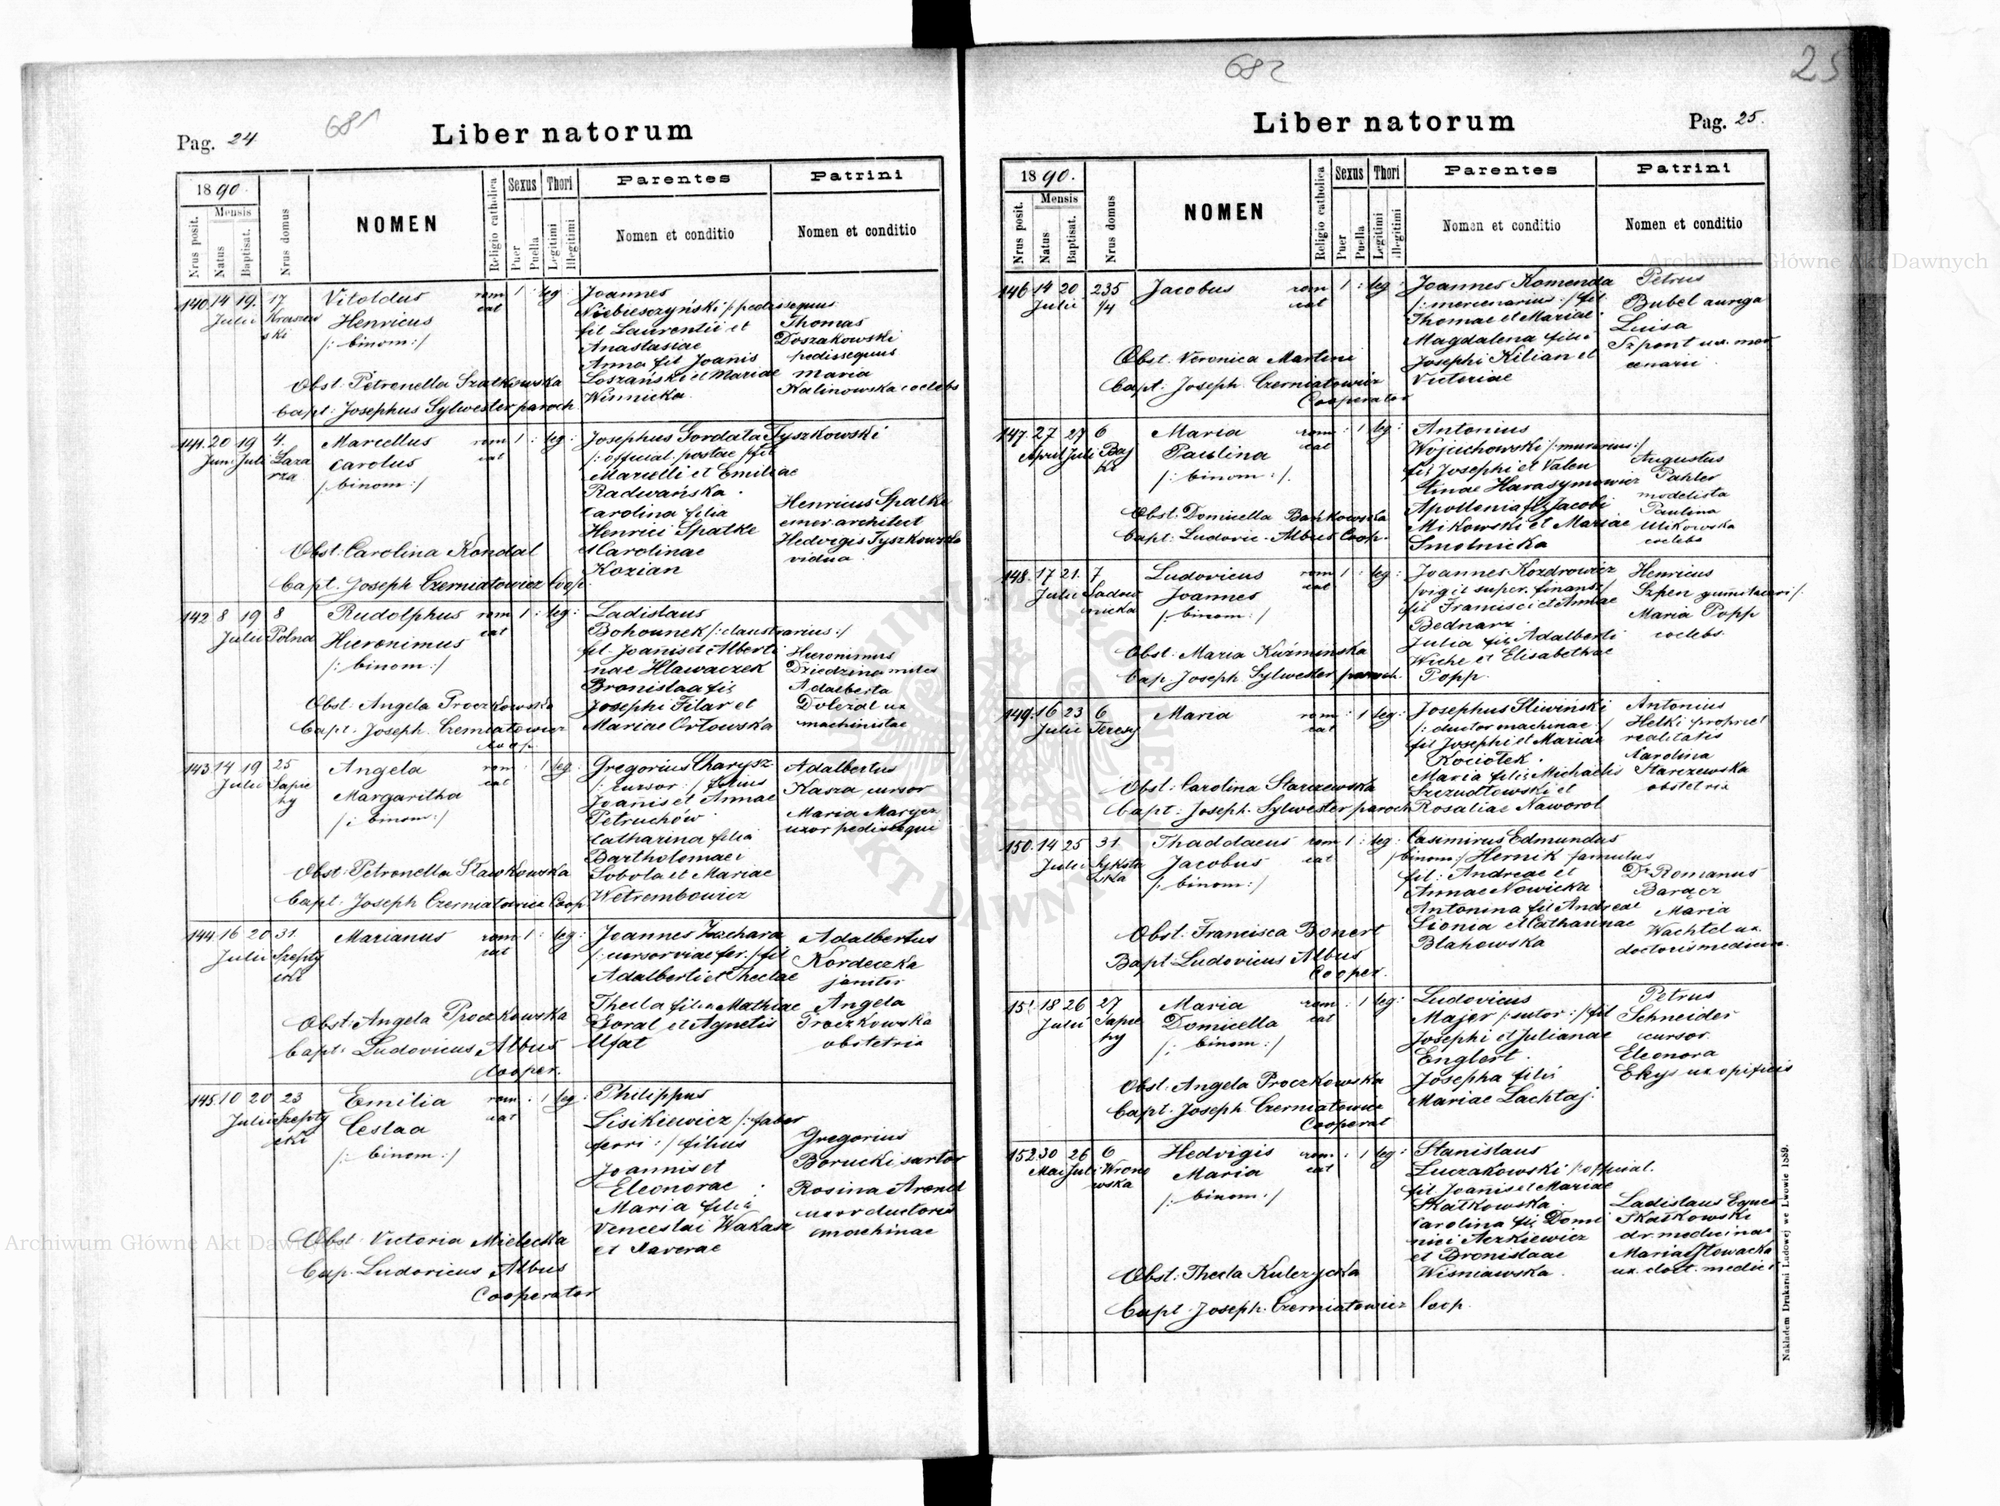 681
Pag. 24
Liber natorum
1890.
Nrus posit.
Mensis
Natus
Baptisat.
Nrus domus
NOMEN
Religio catholica
Sexus
Puer
Puella
Thori
Legitimi
Illegitimi
Parentes
Nomen et conditio
Patrini
Nomen et conditio
140. 14 19. 17 Vitoldus rom 1 : leg: Joannes
Julii Kraszew Henricus cat Niebieszczyński /:pedissequus:
ski /: binom:/ fil Laurentii et Thomas
Anastasiae Doszakowski
Anna fil Joanis pedissequus
Obst: Petronella Szatkowska Loszański et Mariae Maria
Bapt: Josephus Sylwester paroch. Winnicka. Kalinowska coelebs
141. 20 19 4. Marcellus rom 1 : leg: Josephus Gordata Tyszkowski
Juni Juli Laza Carolus cat /: official. postae /fil
rza /binom:/ Marcelli et Emiliae
Radwańska.
Carolina filia Henricus Spalke
Henrici Spalke emer. architect
Obst. Carolina Kondal et Carolinae Hedvigis Tyszkowska
Kozian vidua.
Bapt. Joseph Czerniatowicz Coop.
142 8 19 8 Rudolphus rom 1 : leg: Ladislaus
Julii Polna Hieronimus cat Bohounek /: claustrarius:/
/: binom:/ fil Joanis et Alberti Hieronimus
nae Hlawaczek Dziedzina miles
Bronislaa fil: Adalberta
Obst. Angela Proczkowska Josephi Filar et Doležal ux
Bapt. Joseph. Czerniatowicz Mariae Orłowska machinistae
Coop.
143. 14 19 25 Angela rom : 1 leg: Gregorius Charysz Adalbertus
Julii Sapie Margaritha cat /: cursor :/ filius Kasza cursor
hy /: binom:/ Joanis et Annae Maria Marycz
Petruchów uxor pedissequi
Catharina filia
Bartholomaei
Obst: Petronella Sławkowska Sobola et Mariae
Bapt: Joseph Czerniatowicz Coop. Wetrembowicz
144. 16 20 31. Marianus rom 1 : leg: Joannes Zachara Adalbertus
Julii Szepty cat /: cursor viae fer: /fil Kordeczka
cki Adalberti et Theclae janitor
Thecla filia Mathiae Angela
Obst: Angela Proczkowska Goral et Agnetis Proczkowska
Bapt: Ludovicus Albus Ufat obstetrix
Cooper.
145. 10 20 23 Emilia rom : 1 leg: Philippus
Julii Szepty Ceslaa cat Lisikiewicz /: faber
cki /: binom:/ ferri :/ filius Gregorius
Joannis et Borucki sartor
Eleonorae . Rosina Arend
Maria filia uxor ductoris
Obst. Victoria Mielecka Venceslai Wakasz machinae
Bap. Ludovicus Albus et Xaverae
Cooperator
682
25
Liber natorum
Pag. 25.
1890.
Nrus posit.
Mensis
Natus
Baptisat.
Nrus domus
NOMEN
Religio catholica
Sexus
Puer
Puella
Thori
Legitimi
Illegitimi
Parentes
Nomen et conditio
Patrini
Nomen et conditio
146. 14 20 235 Jacobus rom 1 : leg: Joannes Komenda Petrus
Julii 1/4 cat /: mercenarius :/ fil Bubel auriga
Thomae et Mariae Luisa
Obst. Veronica Martini Magdalena filia Szpont ux. mer
Bapt. Joseph. Czerniatowicz Josephi Kilian et cenarii.
Cooperator Victoriae
147. 27 27 6 Maria rom : 1 leg: Antonius
April Juli Baj Paulina cat Wojuchowski /: murarius:/
ki /: binom:/. fil Josephi et Valen Augustus
tinae Harasymowicz Pahler
Obst. Domicella Bańkowska Apollonia fil: Jacobi modelista
Bapt. Ludovic. Albus Coop. Mikowski et Mariae Paulina
Smolnicka Mikowska
coelebs
148. 17 21. 7 Ludovicus rom 1 : leg: Joannes Kozdrowicz Henricus
Julii Sadow Joannes cat /vigil super. finans:/ Szpen
nicka /: binom:/ fil Francisci et Annae Maria Popp
Bednarz. coelebs.
Obst. Maria Kuźmińska Julia fil: Adalberti
Bap. Joseph Sylwester paroch. Wiche et Elisabethae
Popp.
149. 16 23 6 Maria rom : 1 leg: Josephus Sliwiński Antonius
Julii Teresy cat /: ductor machinae :/ Helki propriet
fil Josephi et Mariae realitatis
Kociołek. Carolina
Obst: Carolina Starzewska Maria filia Michaelis Starczewska
Bapt: Joseph. Sylwester paroch Szczudłowski et obstetrix
Rosaliae Naworol
150. 14 25 31. Thaddaeus rom 1 : leg: Casimirus Edmundus
Julii Syksto Jacobus cat /binom:/ Hernik famulus
ska /: binom:/ fil: Andreae et Dr Romanus
Annae Nowicka Barącz
Antonina fil Andreae Maria
Obst. Francisca Bonert Lionia et Catharinae Wachtel ux.
Bapt Ludovicus Albus Blahowska doctoris medicin.
Cooper.
151. 18 26 27 Maria rom : 1 leg: Ludovicus Petrus
Julii Sapie Domicella cat Majer /: sutor :/ fil Schneider
hy /: binom:/ Josephi et Julianae cursor.
Englert. Eleonora
Obst: Angela Proczkowska Josepha filia Ekys ux opificis
Bapt. Joseph Czerniatowicz Mariae Lachtaj.
Cooperat
152. 30 26 6 Hedvigis rom : 1 leg: Stanislaus
Mai Juli Wrono Maria cat Łuczakowski /: official.
wska /: binom:/ fil Joanis et Mariae
Skałkowska Ladislaus Eques
Carolina fil: Domi Skałkowski
nici Aczkiewicz dr. medicinae
Obst: Thecla Kulczycka et Bronislaae Maria Głowacka
Wiśniawska. ux. doct. medici
Bapt. Joseph. Czerniatowicz Coop.
Nakładem Drukarni Ludowej we Lwowie 1889.
Archiwum Główne Akt Dawnych
Archiwum Główne Akt Dawnych
ARCHIWUM GŁÓWNE AKT DAWNYCH